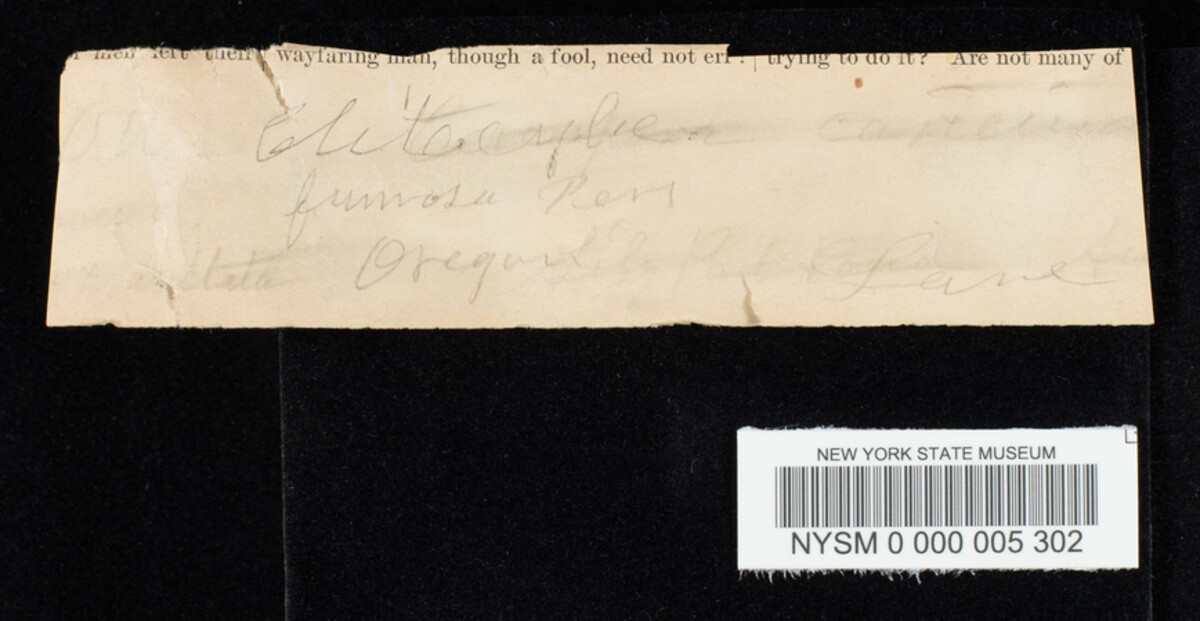 men left their wayfaring man, though a fool, need not err. trying to do it? Are not many of
Clitocybe
fumosa Pers
Oregon Lane
NEW YORK STATE MUSEUM
NYSM 0 000 005 302